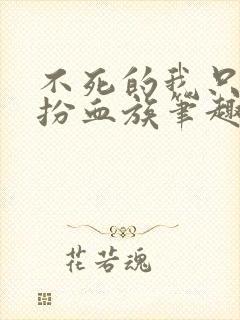 不死的我只
扮血族笔趣
花若魂